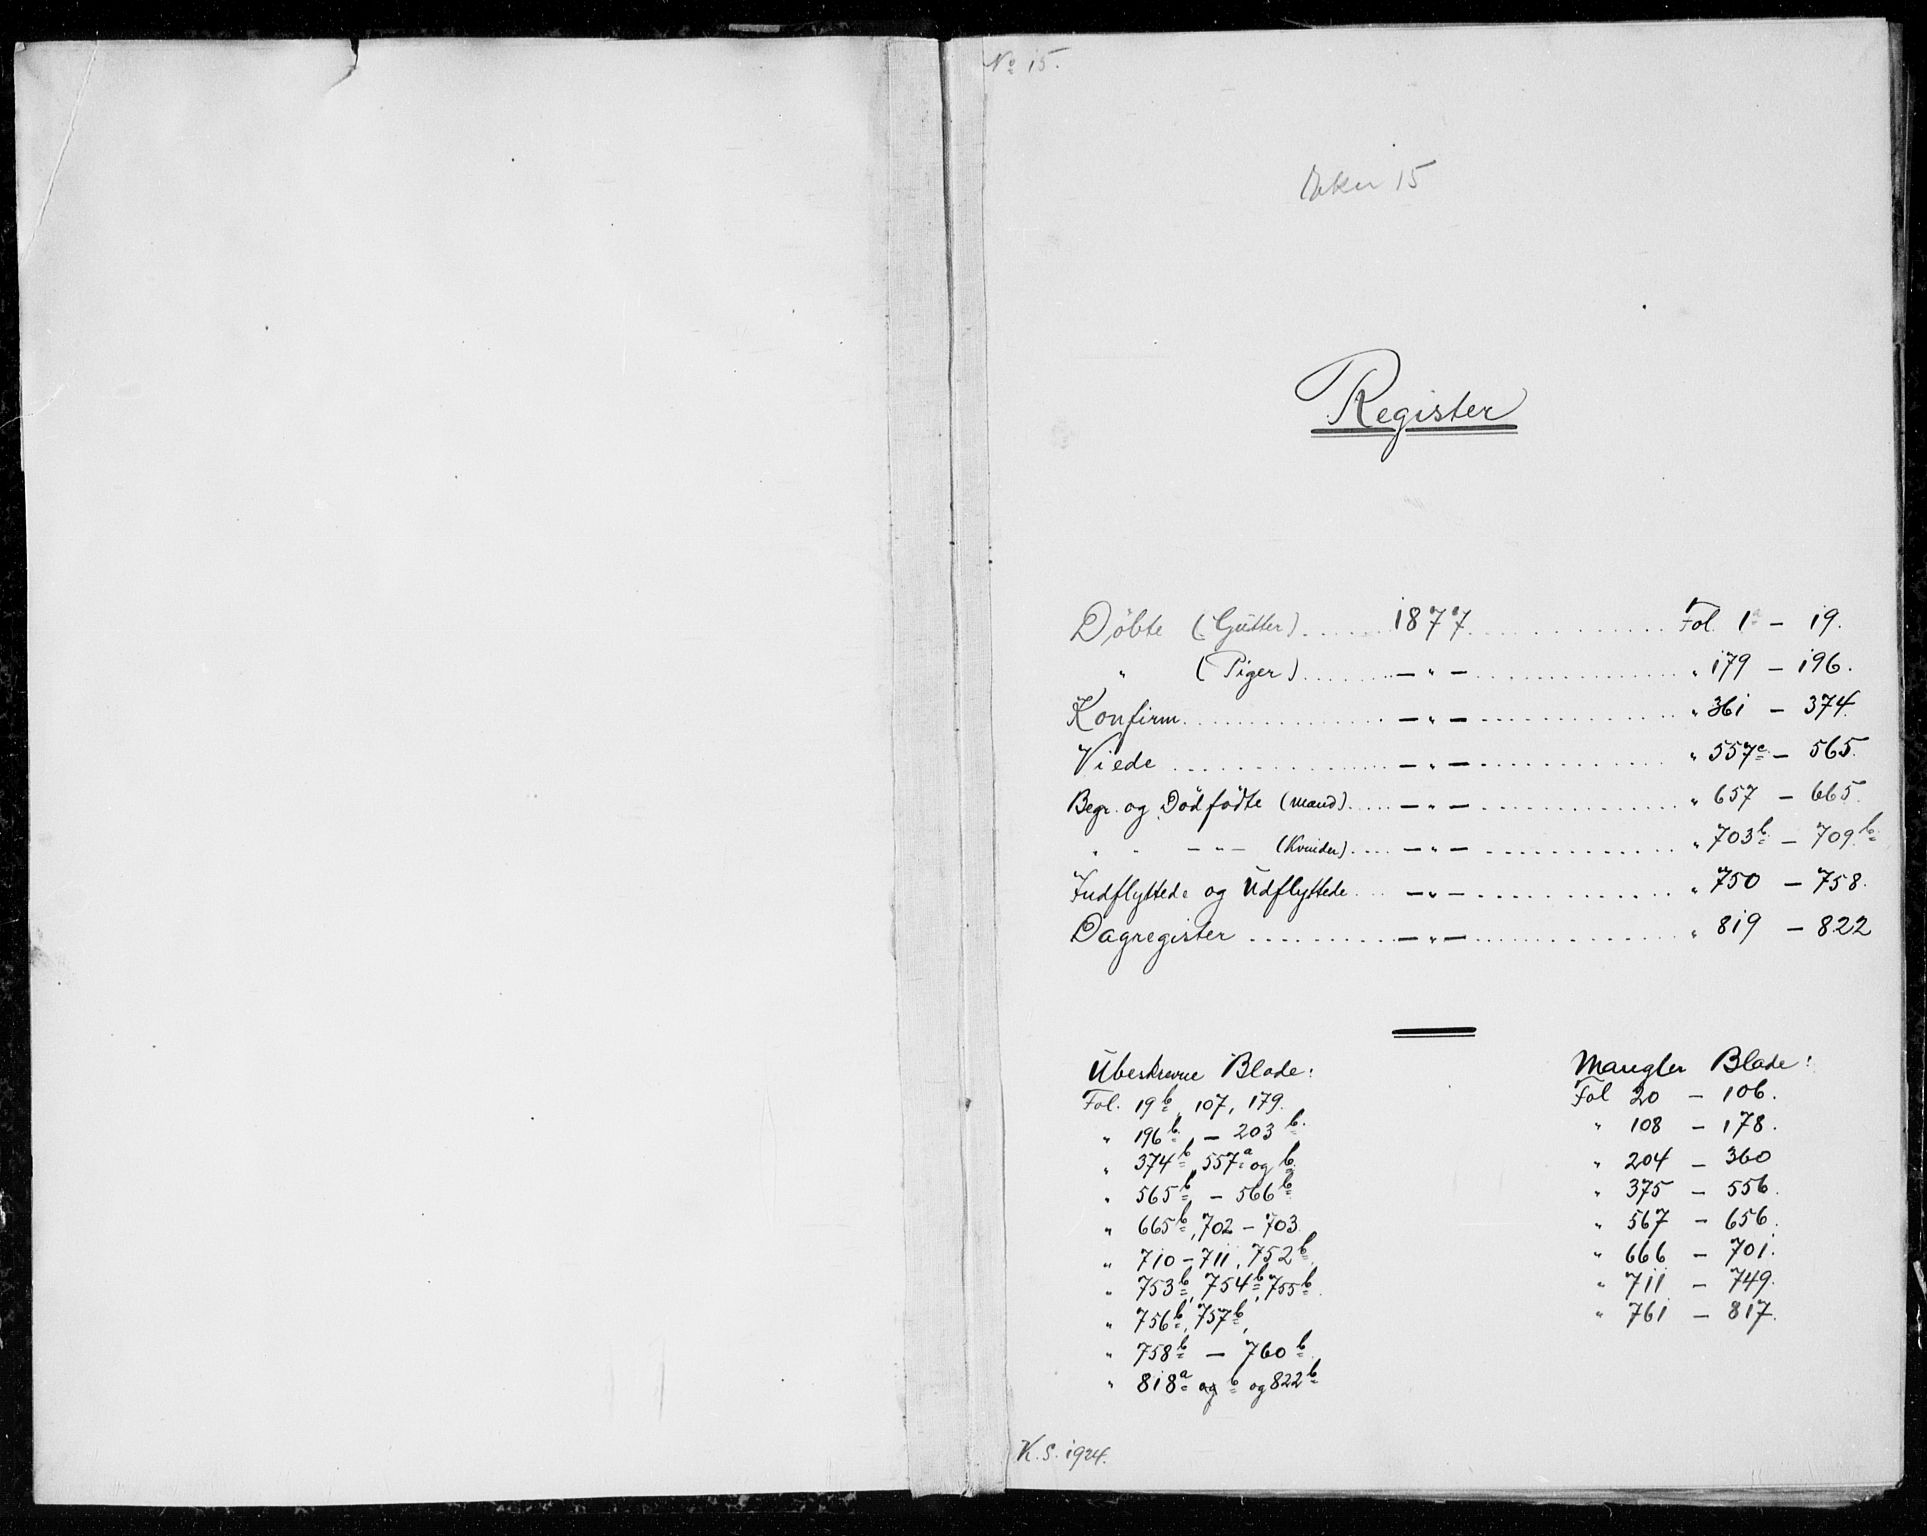 No 15.
15
Register
Döbte (Gutter) ...... 1877 ............ Fol. 1a - 19.
" (Piger) ...... - " - ............ " 179 - 196.
Konfirm. ............ - " - ............ " 361 - 374.
Viede ............ - " - ............ " 557c - 565.
Begr. og Dödfödte (Mænd) .... - " - ............ " 657 - 665.
" " - " - (Kvinder) .... - " - ............ " 703b - 709b.
Indflyttede og Udflyttede ... - " - ............ " 750 - 758.
Dagregister ............ - " - ............ " 819 - 822
Ubeskrevne Blade:
Fol. 19b, 107, 179.
" 196b. - 203b.
" 374b, 557a og b.
" 565b - 566b
" 665b, 702 - 703
" 710 - 711, 752b
" 753b, 754b, 755b.
" 756b, 757b,
" 758b - 760b
" 818a og b og 822b
Mangler Blade:
Fol 20 - 106.
" 108 - 178.
" 204 - 360
" 375 - 556.
" 567 - 656.
" 666 - 701.
" 711 - 749.
" 761 - 817.
K.S. 1924.